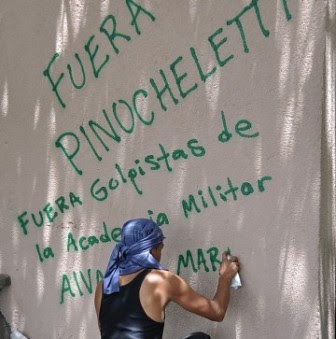 FUERA
PINOCHELETTI
FUERA Golpistas de
la Academia Militar
AlVA MAR